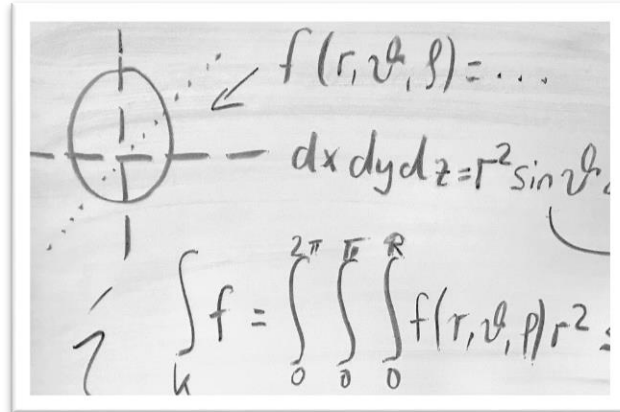 f(r,ϑ,ρ)=...
dx dy dz=r² sin ϑ
∫_K f = ∫_0^{2π} ∫_0^π ∫_0^R f(r,ϑ,ρ) r²